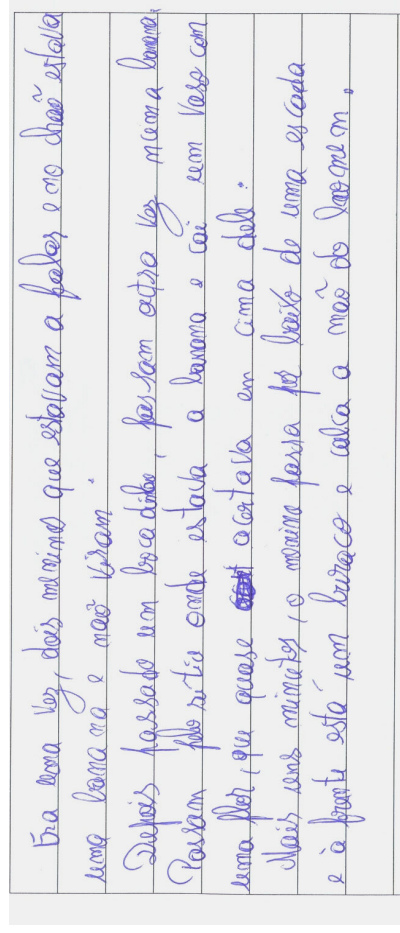 Era uma vez, dois meninos que estavam a falar e no chão estava
uma banana e não viram.
Depois passado um bocadinho, passam outra vez numa banana.
Passam plo sitio onde estava a banana e cai um vaso com
uma flor, que quase acertava em cima dele.
Mais uns minutos, o menino passa por baixo de uma escada
e à frente está um buraco e calca a mão do homem.